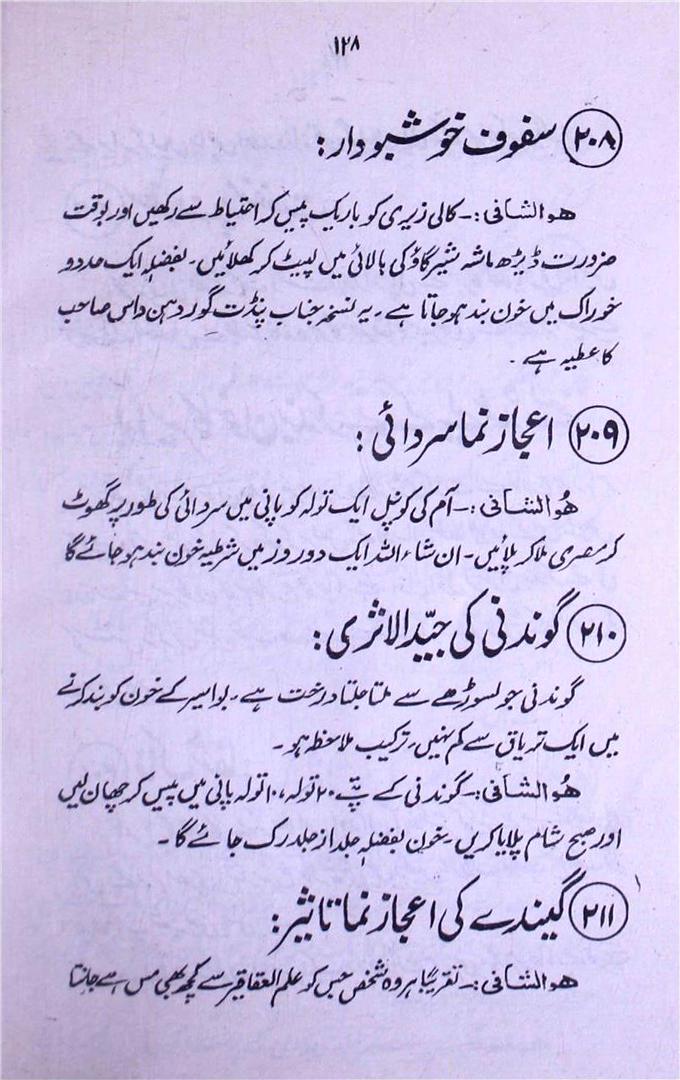 ۱۲۸
۲۰۸ سفوف خوشبودار:
ھوالشافی:۔ کالی زیری کو باریک پیس کر احتیاط سے رکھیں اور بوقت
ضرورت ڈیڑھ ماشہ شیر گاؤ کی بالائی میں لپیٹ کر کھلائیں۔ بفضلہٖ ایک حد دو
خوراک میں خون بند ہو جاتا ہے۔ یہ نسخہ جناب پنڈت گوردھن داس صاحب
کا عطیہ ہے۔
۲۰۹ اعجاز نما سردائی:
ھُوالشافی:۔ آم کی کونپل ایک تولہ کو پانی میں سردائی کی طور پر گھوٹ
کر مصری ملا کر پلائیں۔ ان شاء اللہ ایک دو روز میں شرطیہ خون بند ہو جائے گا
۲۱۰ گوندنی کی جیّد الاثری:
گوندنی جو لسوڑھے سے ملتا جلتا درخت ہے۔ بواسیر کے خون کو بند کرنے
میں ایک تریاق سے کم نہیں۔ ترکیب ملاحظہ ہو۔
ھُوالشافی:۔ گوندنی کے پتے ۲۰ تولہ، ۱۰ تولہ پانی میں پیس کر چھان لیں
اور صبح شام پلایا کریں۔ خون بفضلہٖ جلد از جلد رک جائے گا۔
۲۱۱ گیندے کی اعجاز نما تاثیر:
ھوالشافی:۔ تقریبًا ہر وہ شخص جس کو علم العقاقیر سے کچھ بھی مس ہے جانتا